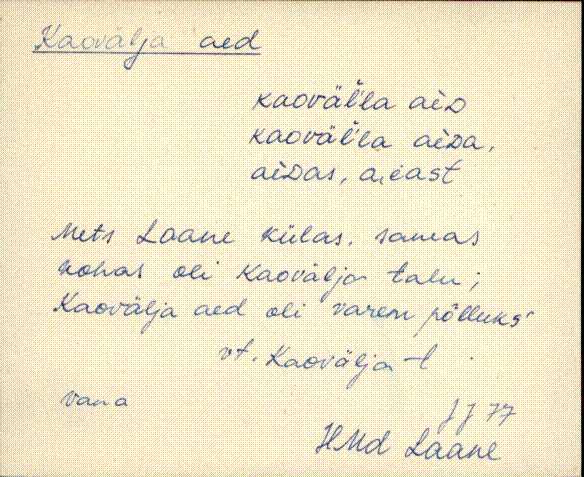 Kaovälja aed
kaoväl'la aeD
kaoväl'la aeDa,
aeDas, a,east
Mets Laane külas. samas
kohas oli Kaovälja talu;
Kaovälja aed oli varem põlluks
vt. Kaovälja t
vana
JJ 77
HMd Laane